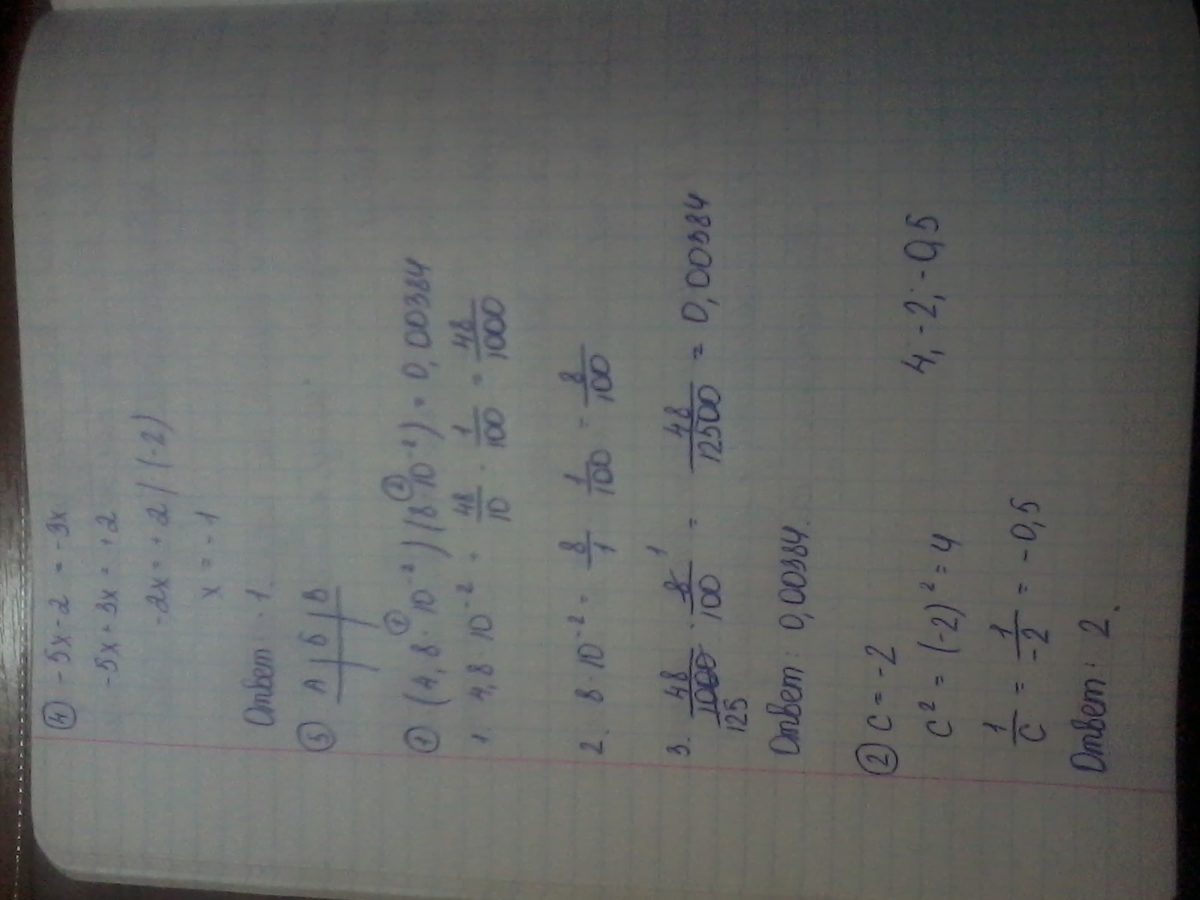 ④ -5x - 2 = -3x
-5x + 3x = +2
-2x = +2 | (-2)
x = -1
Ответ: -1.
⑤ А | Б | В
① (4,8 · 10⁻²) (8 · 10⁻²) = 0,00384
1. 4,8 · 10⁻² = 48/10 · 1/100 = 48/1000
2. 8 · 10⁻² = 8/1 · 1/100 = 8/100
3. 48/1000 · 8/100 = 48/12500 = 0,00384
125 1
Ответ: 0,00384.
② c = -2
c² = (-2)² = 4 4; -2; -0,5
1/c = 1/-2 = -0,5
Ответ: 2.